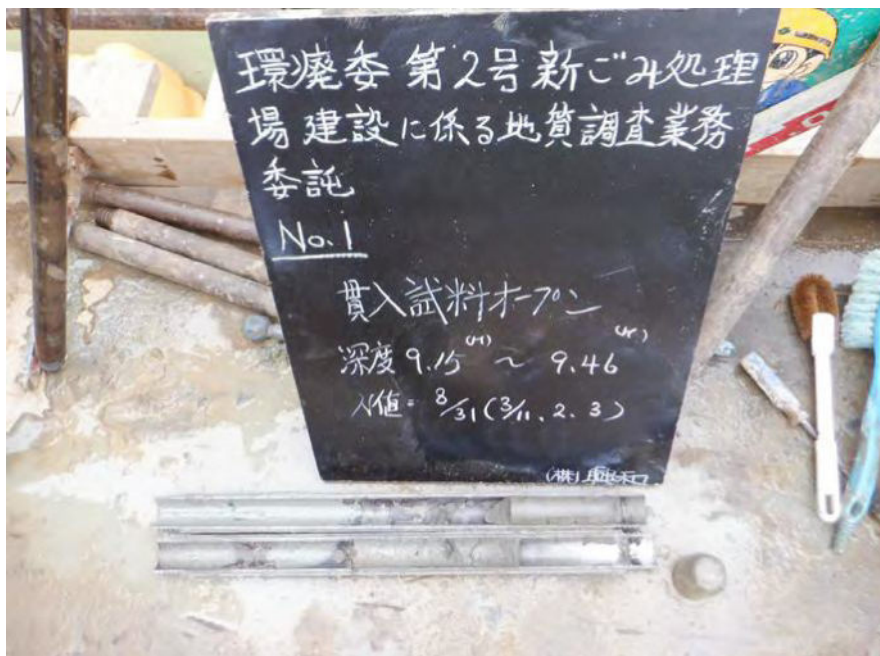 環廃委 第2号 新ごみ処理
場建設に係る地質調査業務
委託
No.1
貫入試料オープン
深度 9.15(M) ～ 9.46(M)
N値= 8/31(3/11. 2. 3)
(株)興和